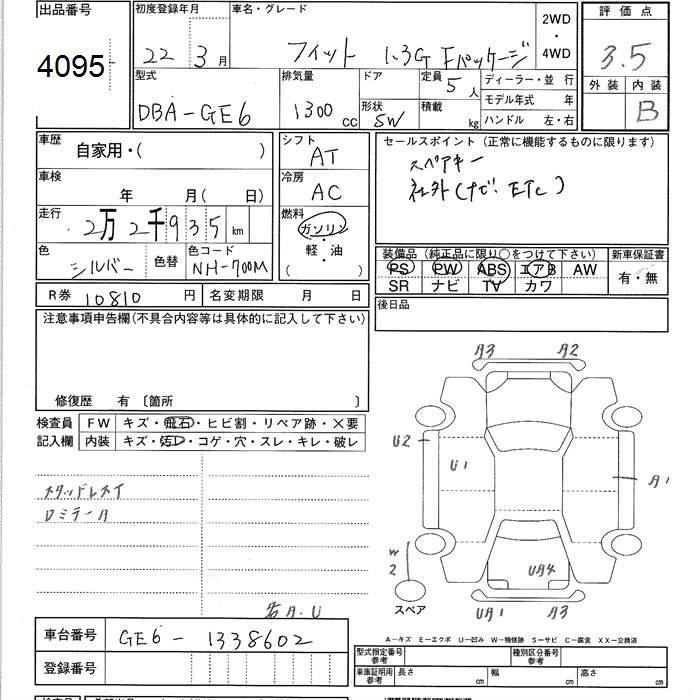 出品番号 初度登録年月 車名・グレード 2WD・4WD 評価点
4095 22年3月 フィット 1.3G Fパッケージ 3.5
型式 排気量 ドア 定員 5人 ディーラー・並行 外装 内装
DBA-GE6 1300cc 形状 SW 積載 kg モデル年式 年 B
ハンドル 左・右
車歴 自家用・( ) シフト AT セールスポイント(正常に機能するものに限ります)
スペアキー
車検 年 月( 日) 冷房 AC 社外(ナビ、ETC)
走行 2万2千935km 燃料 ガソリン・軽・油 ( )
色 シルバー 色替 色コード NH-700M
装備品(純正品に限り○をつけて下さい) 新車保証書
PS PW ABS エアB AW 有・無
SR ナビ TV カワ
R券 10810円 名変期限 月 日 後日品
注意事項申告欄(不具合内容等は具体的に記入して下さい)
修復歴 有 〔箇所 〕
検査員 FW キズ・飛石・ヒビ割・リペア跡・×要
記入欄 内装 キズ・汚レ・コゲ・穴・スレ・キレ・破レ
A3 A2
U2 U1 A1
スタッドレスタイ
ロミゾーA
W2 UA4
スペア UA1 A3
右A.U
A-キズ E-エクボ U-凹み W-補修跡 S-サビ C-腐食 XX-交換済
車台番号 GE6-1338602
型式指定番号 参考 種別区分番号 参考
登録番号
車庫証明用 参考 長さ cm 幅 cm 高さ cm